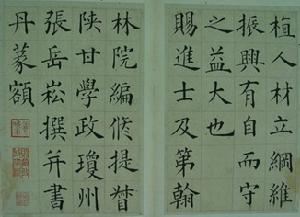 植人材立綱維
振興有自而守
之益大也
賜進士及第翰
林院編修提督
陝甘學政瓊州
張岳崧撰并書
丹蒙額